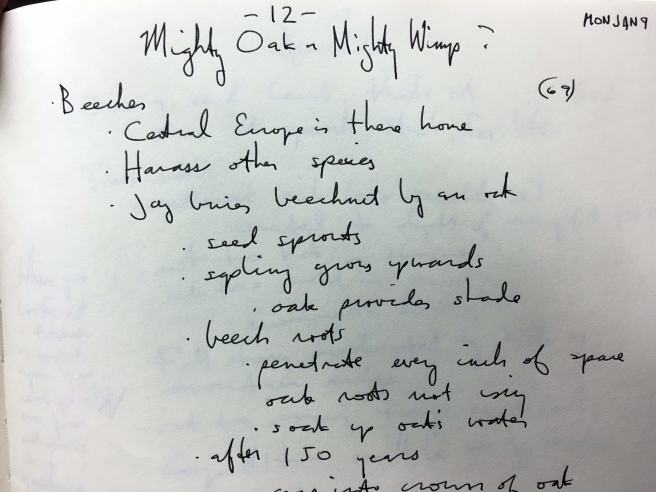 - 12 -
MON JAN 9
Mighty Oak or Mighty Wimp?
(69)
· Beeches
· Central Europe is there home
· Harass other species
· Jay buries beechnut by an oak
· seed sprouts
· sapling grows upwards
· oak provides shade
· beech roots
· penetrate every inch of space
oak roots not using
· soak up oak's water
· after 150 years
into crown of oak